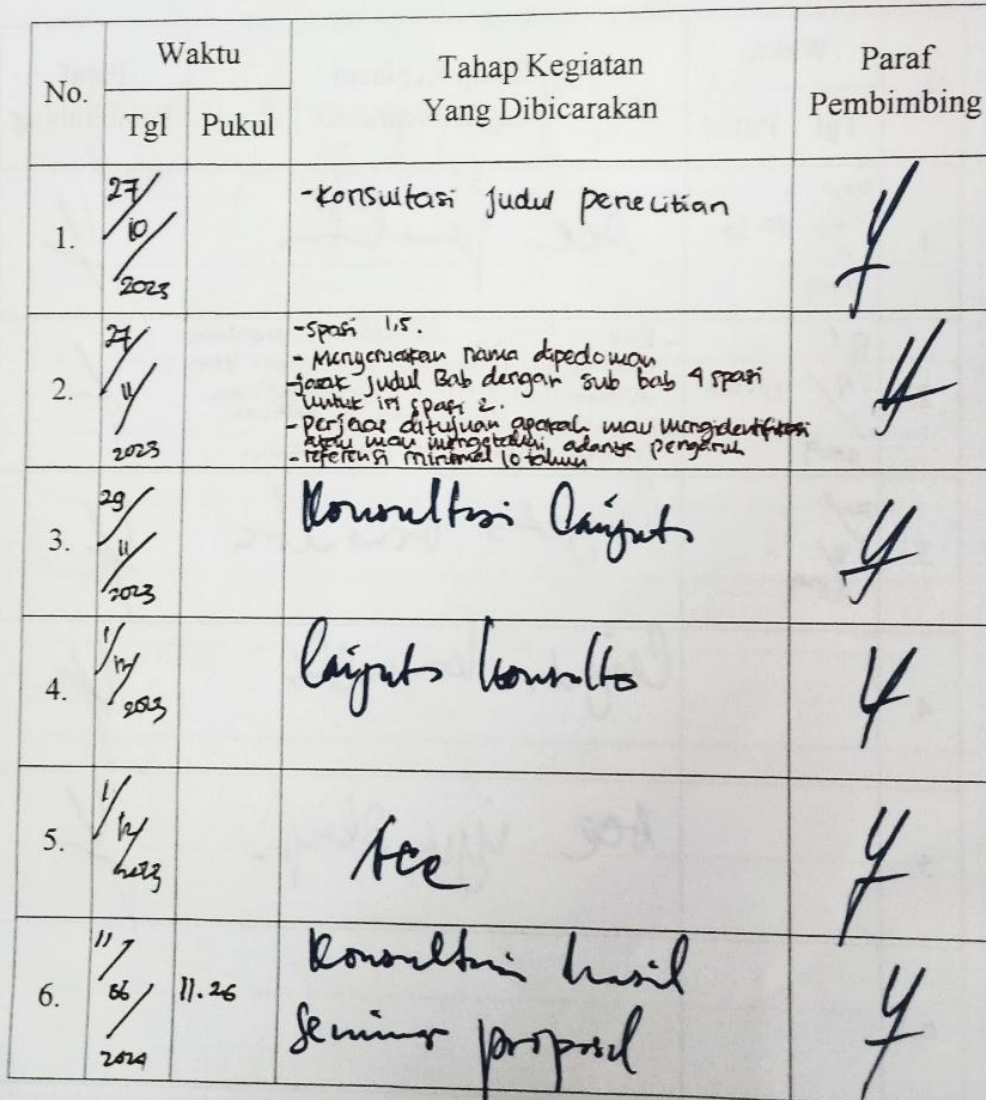 No.
Waktu
Tgl
Pukul
Tahap Kegiatan
Yang Dibicarakan
Paraf
Pembimbing
1.
27/
10/
2023
-Konsultasi judul penelitian
2.
27/
11/
2023
-Spasi 1,5.
- nama dipedoman
-jarak judul Bab dengan sub bab 4 spasi
untuk isi spasi 2.
-perjelas ditujuan apakah mau mengidentifikasi
atau mau mengetahui adanya pengaruh
-referensi minimal 10 tahun
3.
29/
11/
2023
Konsultasi
4.
1/
12/
2023
5.
1/
12/
2023
Acc
6.
11/
06/
2024
11.26
Konsultasi hasil
Seminar proposal